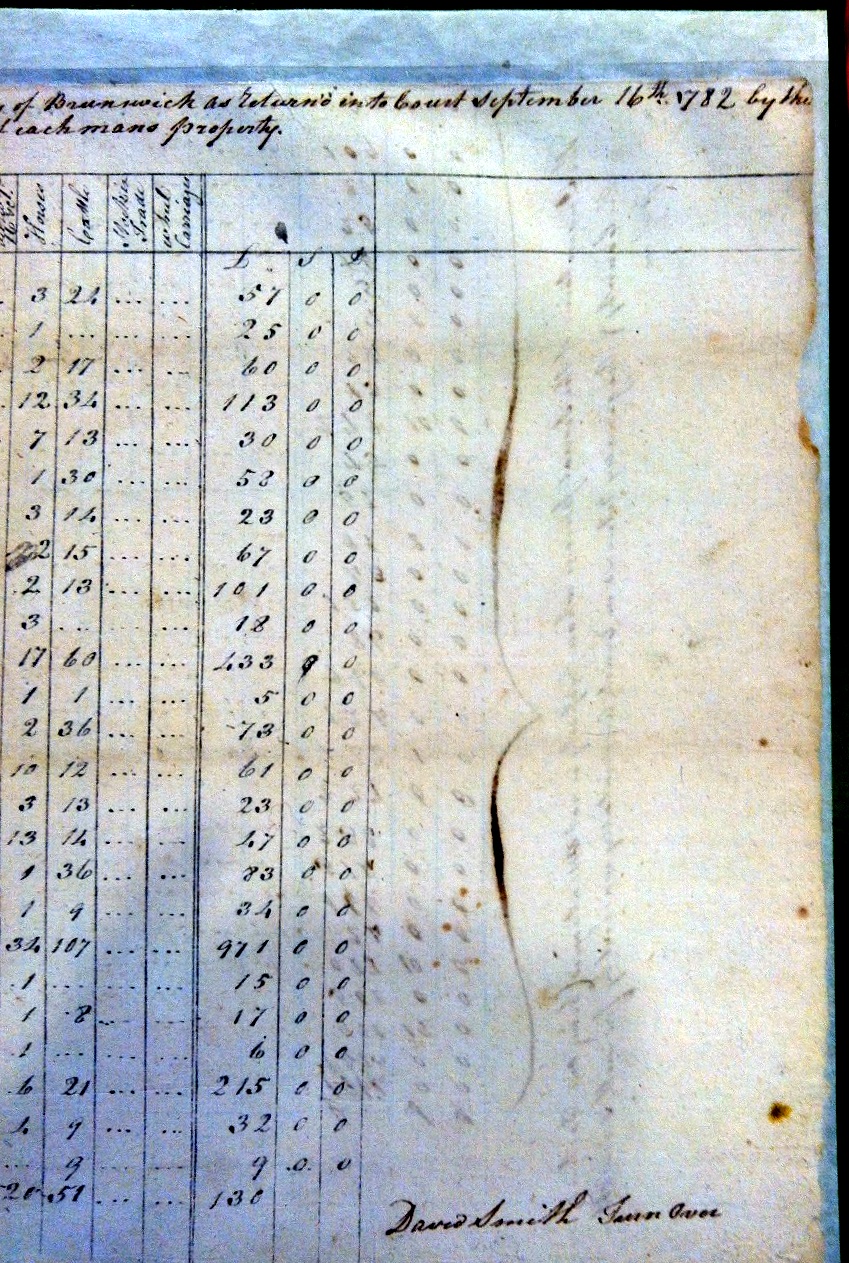 of Brunswick as Return'd into Court September 16th. 1782 by the
each mans property.
Horses Cattle Stock in Trade wheel Carriages
£ S D
3 24 ... ... 57 0 0
1 ... ... ... 25 0 0
2 17 ... ... 60 0 0
12 34 ... ... 113 0 0
7 13 ... ... 30 0 0
1 30 ... ... 58 0 0
3 14 ... ... 23 0 0
2 15 ... ... 67 0 0
2 13 ... ... 101 0 0
3 ... ... ... 18 0 0
17 60 ... ... 433 0 0
1 1 ... ... 5 0 0
2 36 ... ... 73 0 0
10 12 ... ... 61 0 0
3 13 ... ... 23 0 0
13 14 ... ... 47 0 0
1 36 ... ... 83 0 0
1 9 ... ... 34 0 0
34 107 ... ... 971 0 0
1 ... ... ... 15 0 0
1 8 ... ... 17 0 0
1 ... ... ... 6 0 0
6 21 ... ... 215 0 0
4 9 ... ... 32 0 0
... 9 ... ... 9 0 0
20 51 ... ... 130
David Smith Turn Over